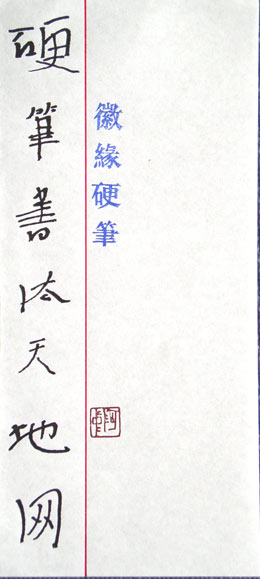 徽緣硬筆
硬筆書法天地网